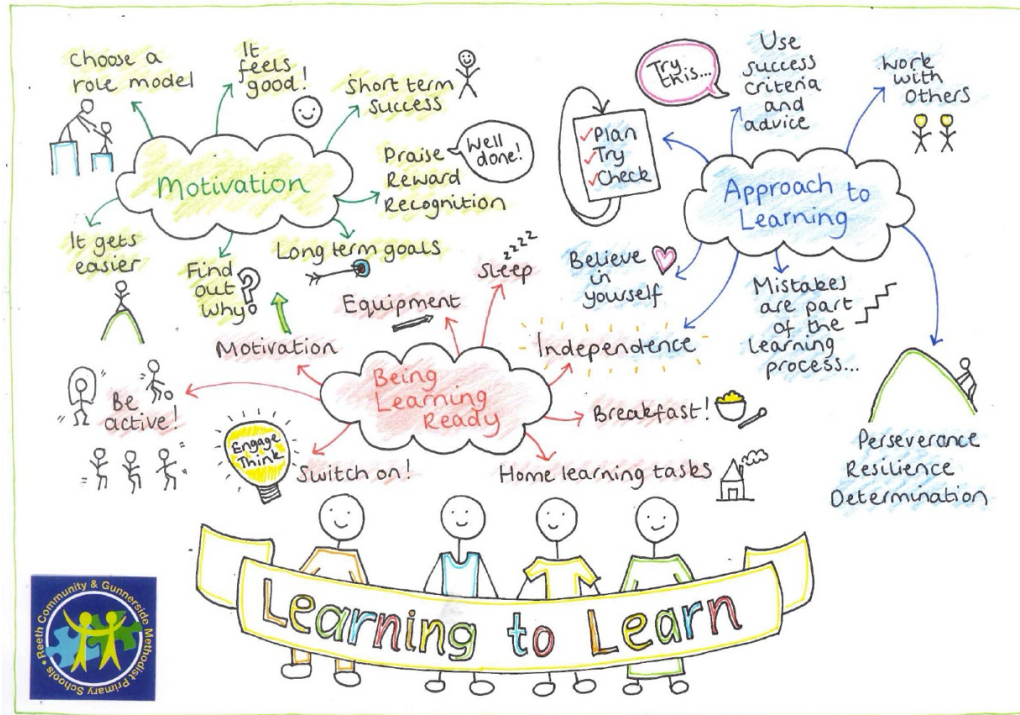 Choose a
role model
It
feels
good!
Short term
Success
Motivation
Praise
Reward
Recognition
Well
done!
It gets
easier
Find
out
why?
Long term goals
Try
this...
Use
success
criteria
and
advice
Work
with
Others
Plan
Try
Check
Approach to
Learning
Believe
in
yourself
Mistakes
are part
of the
learning
process...
Independence
Perseverance
Resilience
Determination
Sleep
zzzz
Equipment
Motivation
Being
Learning
Ready
Be
active!
Engage
Think
Switch on!
Breakfast!
Home learning tasks
Learning to Learn
Reeth Community & Gunnerside Methodist Primary Schools